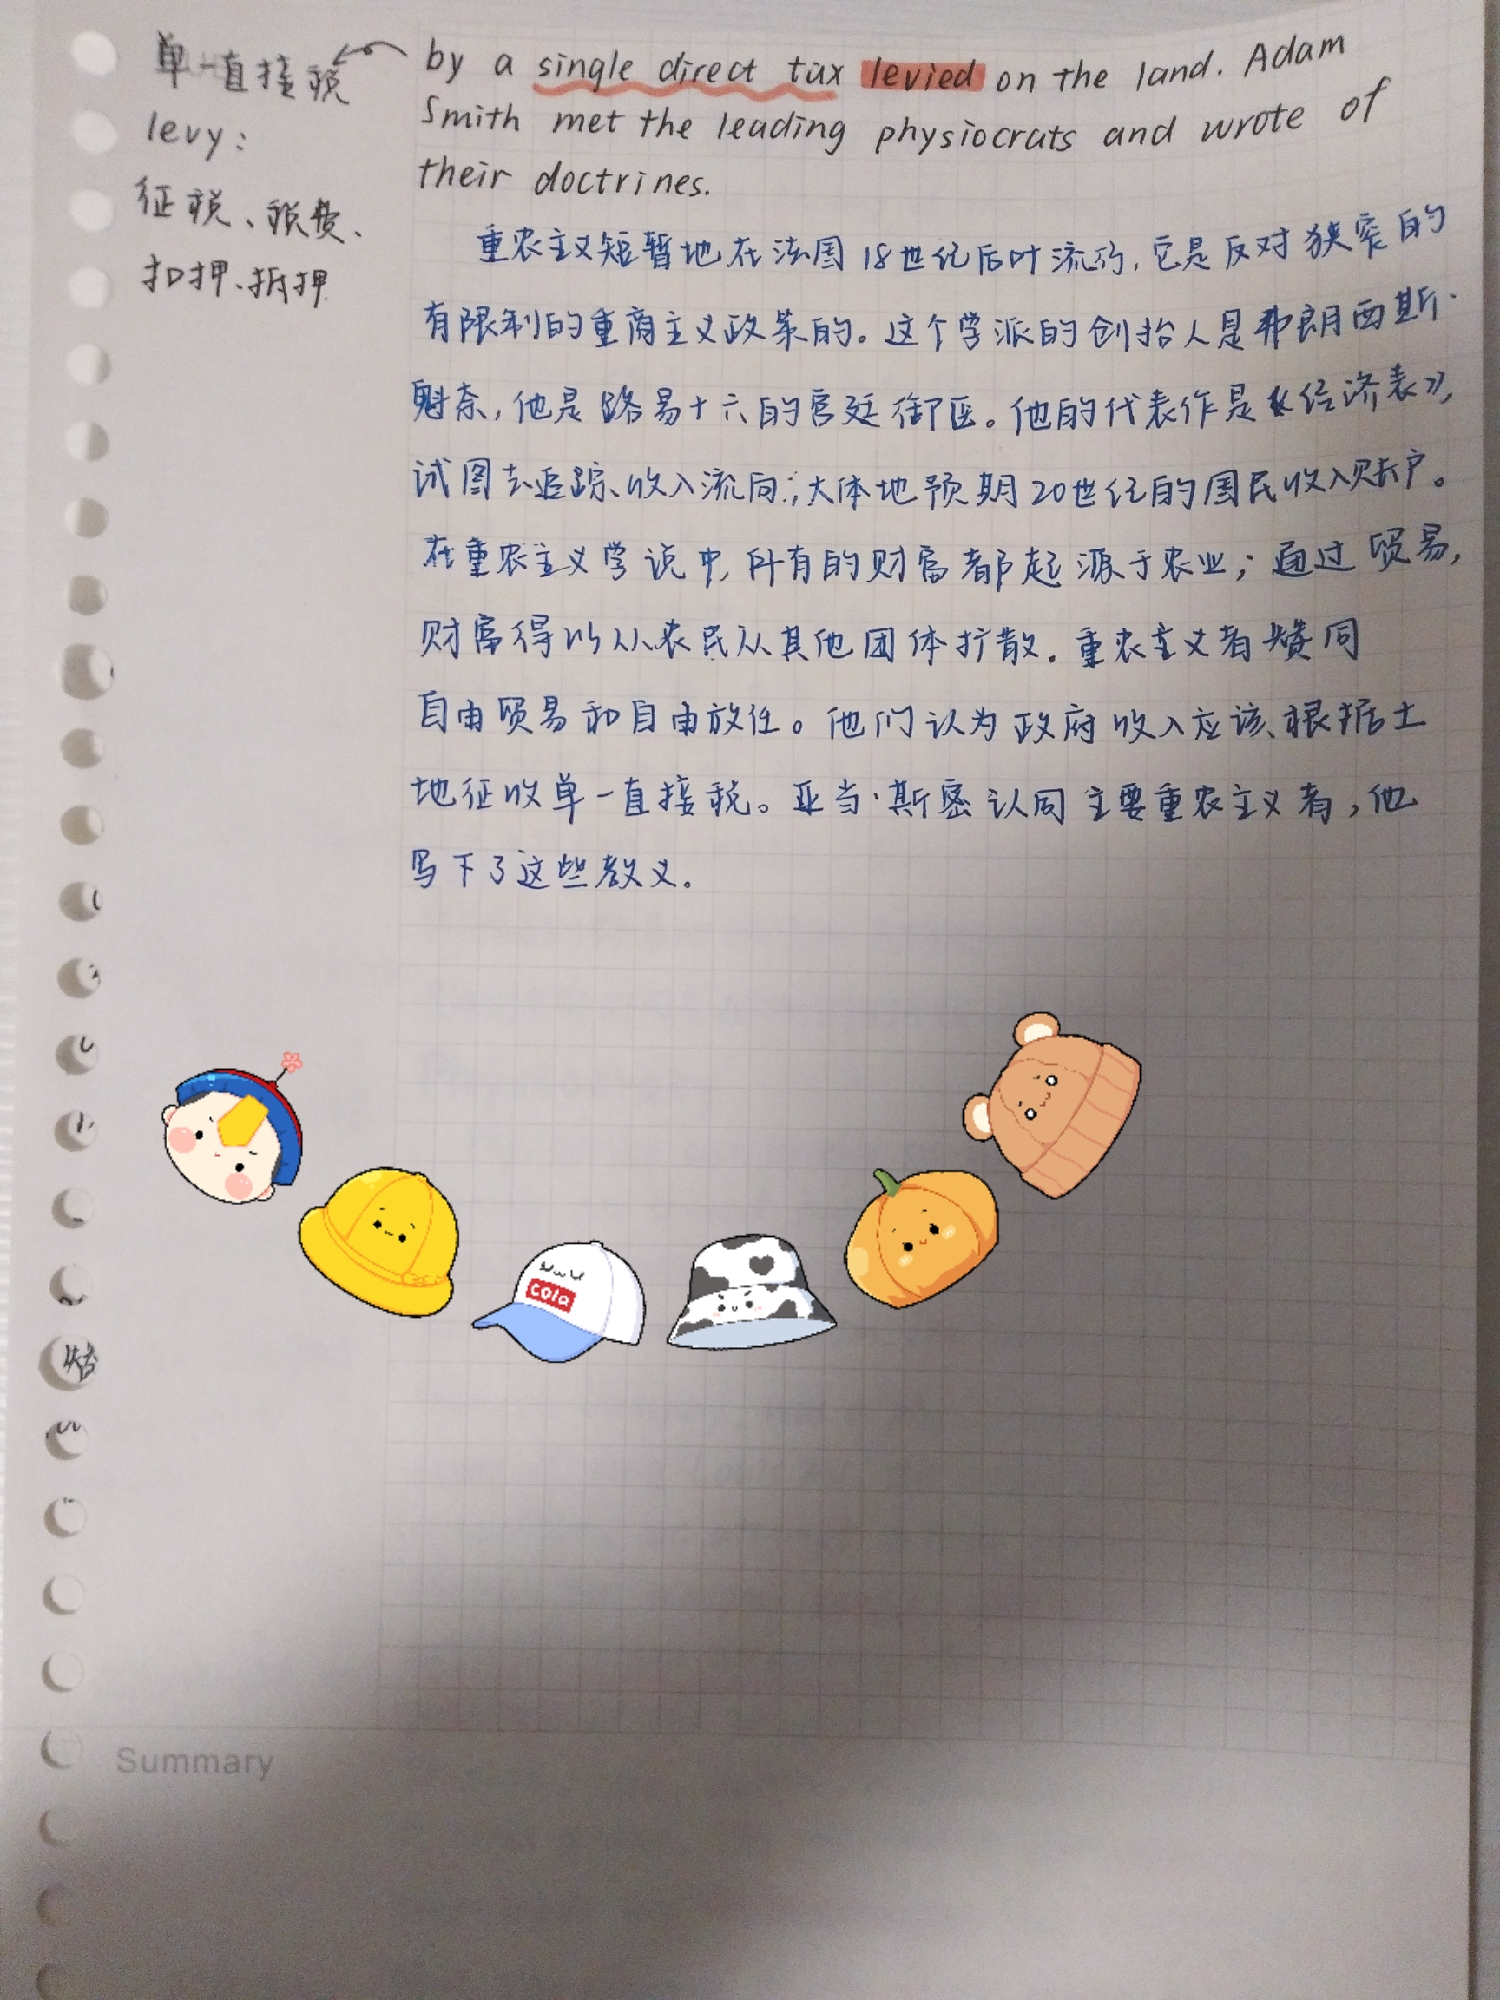 单一直接税
levy:
征税、税费、
扣押、抵押
by a single direct tax levied on the land. Adam
Smith met the leading physiocrats and wrote of
their doctrines.
重农主义短暂地在法国18世纪后叶流行,它是反对狭窄的
有限制的重商主义政策的。这个学派的创始人是弗朗西斯·
魁奈,他是路易十六的宫廷御医。他的代表作是《经济表》,
试图去追踪收入流向;大体地预期20世纪的国民收入账户。
在重农主义学说中,所有的财富都起源于农业;通过贸易,
财富得以从农民从其他团体扩散.重农主义者赞同
自由贸易和自由放任。他们认为政府收入应该根据土
地征收单一直接税。亚当·斯密认同主要重农主义者,他
写下了这些教义.
cola
Summary